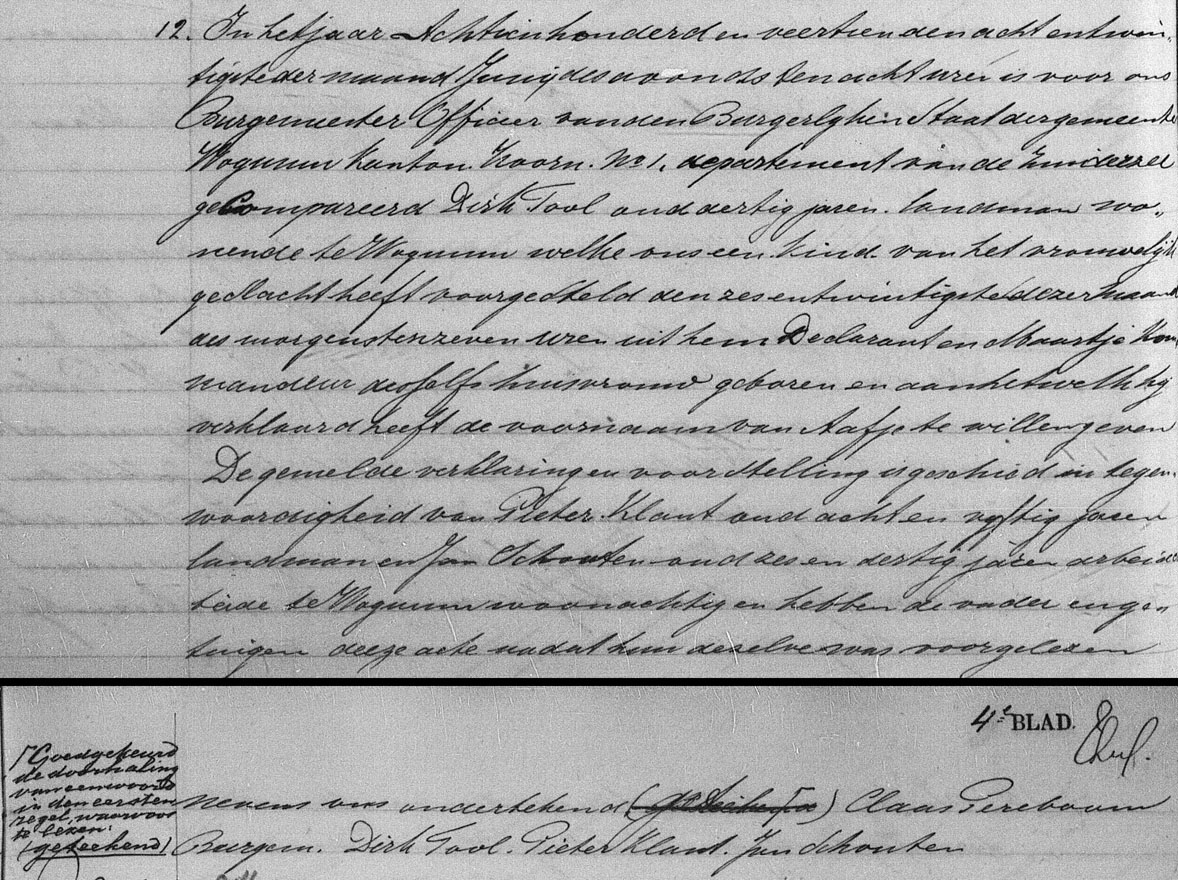 12. In het jaar Achttienhonderd en veertien den acht en twin„
tigste der maand Junij des avonds ten acht uren is voor ons
Burgemeester Officier van den Burgerlyken Staat der gemeente
Wognum Kanton Hoorn No 1, departement van de Zuiderzee
geCompareerd Dirk Tool oud dertig jaren landman wo„
nende te Wognum welke ons een Kind van het vrouwelijk
geslacht heeft voorgesteld den zes en twintigste dezer maand
des morgens ten zeven uren uit hem Declarant en Maartje Kom
mandeur deszelfs huisvrouw geboren en aan hetwelk hij
verklaard heeft de voornaam van Aafje te willen geven
De gemelde verklaring en voorstelling is geschied in tegen„
woordigheid van Pieter Klant oud acht en vyftig jaren
landman en Jan Schouten oud zes en dertig jaren arbeider
beide te Wognum woonachtig en hebben de vader en ge„
tuigen deeze acte nadat hun dezelve was voorgelezen
4e BLAD.
Goedgekeurd
de doorhaling
van een woord
in den eersten
regel, waarvoor
te lezen:
(geteekend)
nevens ons ondertekend (geteekend) Claas Pereboom
Burgem. Dirk Tool. Pieter Klant. Jan Schouten